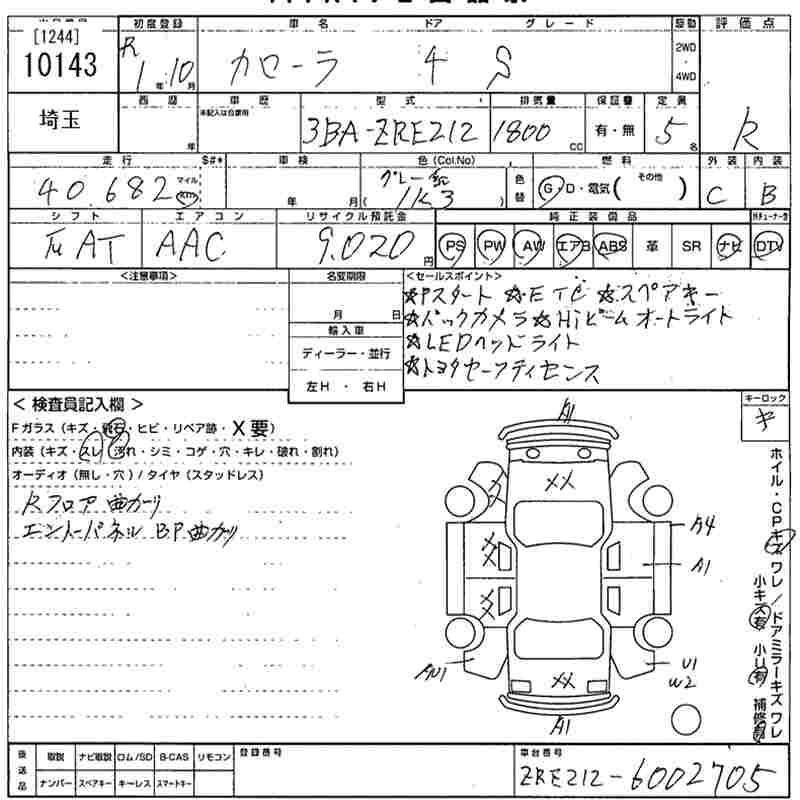 [1244]
10143
埼玉
初度登録
R
1年10月
車名
カローラ
ドア
4
グレード
S
駆動
2WD
・
4WD
評価点
R
西暦
年
車歴
未記入は自家用
型式
3BA-ZRE212
排気量
1800 CC
保証書
有・無
定員
5名
走行
40.682
マイル
km
S#*
車検
年 月
色(Col.No)
グレー
1K3
色替
燃料
G・D・電気( その他 )
外装
C
内装
B
シフト
AT
エアコン
AAC
リサイクル預託金
9.020円
純正装備品
PS PW AW エアB ABS 革 SR ナビ DTV
<注意事項>
名変期限
月 日
輸入車
ディーラー・並行
左H ・ 右H
<セールスポイント>
☆Pスタート ☆ETC ☆スペアキー
☆バックカメラ☆Hiビームオートライト
☆LEDヘッドライト
☆トヨタセーフティセンス
< 検査員記入欄 >
Fガラス(キズ・飛石・ヒビ・リペア跡・X要)
内装(キズ・スレ・汚れ・シミ・コゲ・穴・キレ・破れ・割れ)
オーディオ(無し・穴)/タイヤ(スタッドレス)
Rフロア 曲カリ
エンドーパネル BP曲カリ
キーロック
キ
A1
XX
A4
XX
A1
XX
AU1
U1
W2
XX
A1
ホイル・CPキズワレ/ドアミラーキズワレ
小キズ有 小U有 補修有
後送品
取説 ナビ取説 ロム/SD B-CAS リモコン
ナンバー スペアキー キーレス スマートキー
登録番号
車台番号
ZRE212-6002705